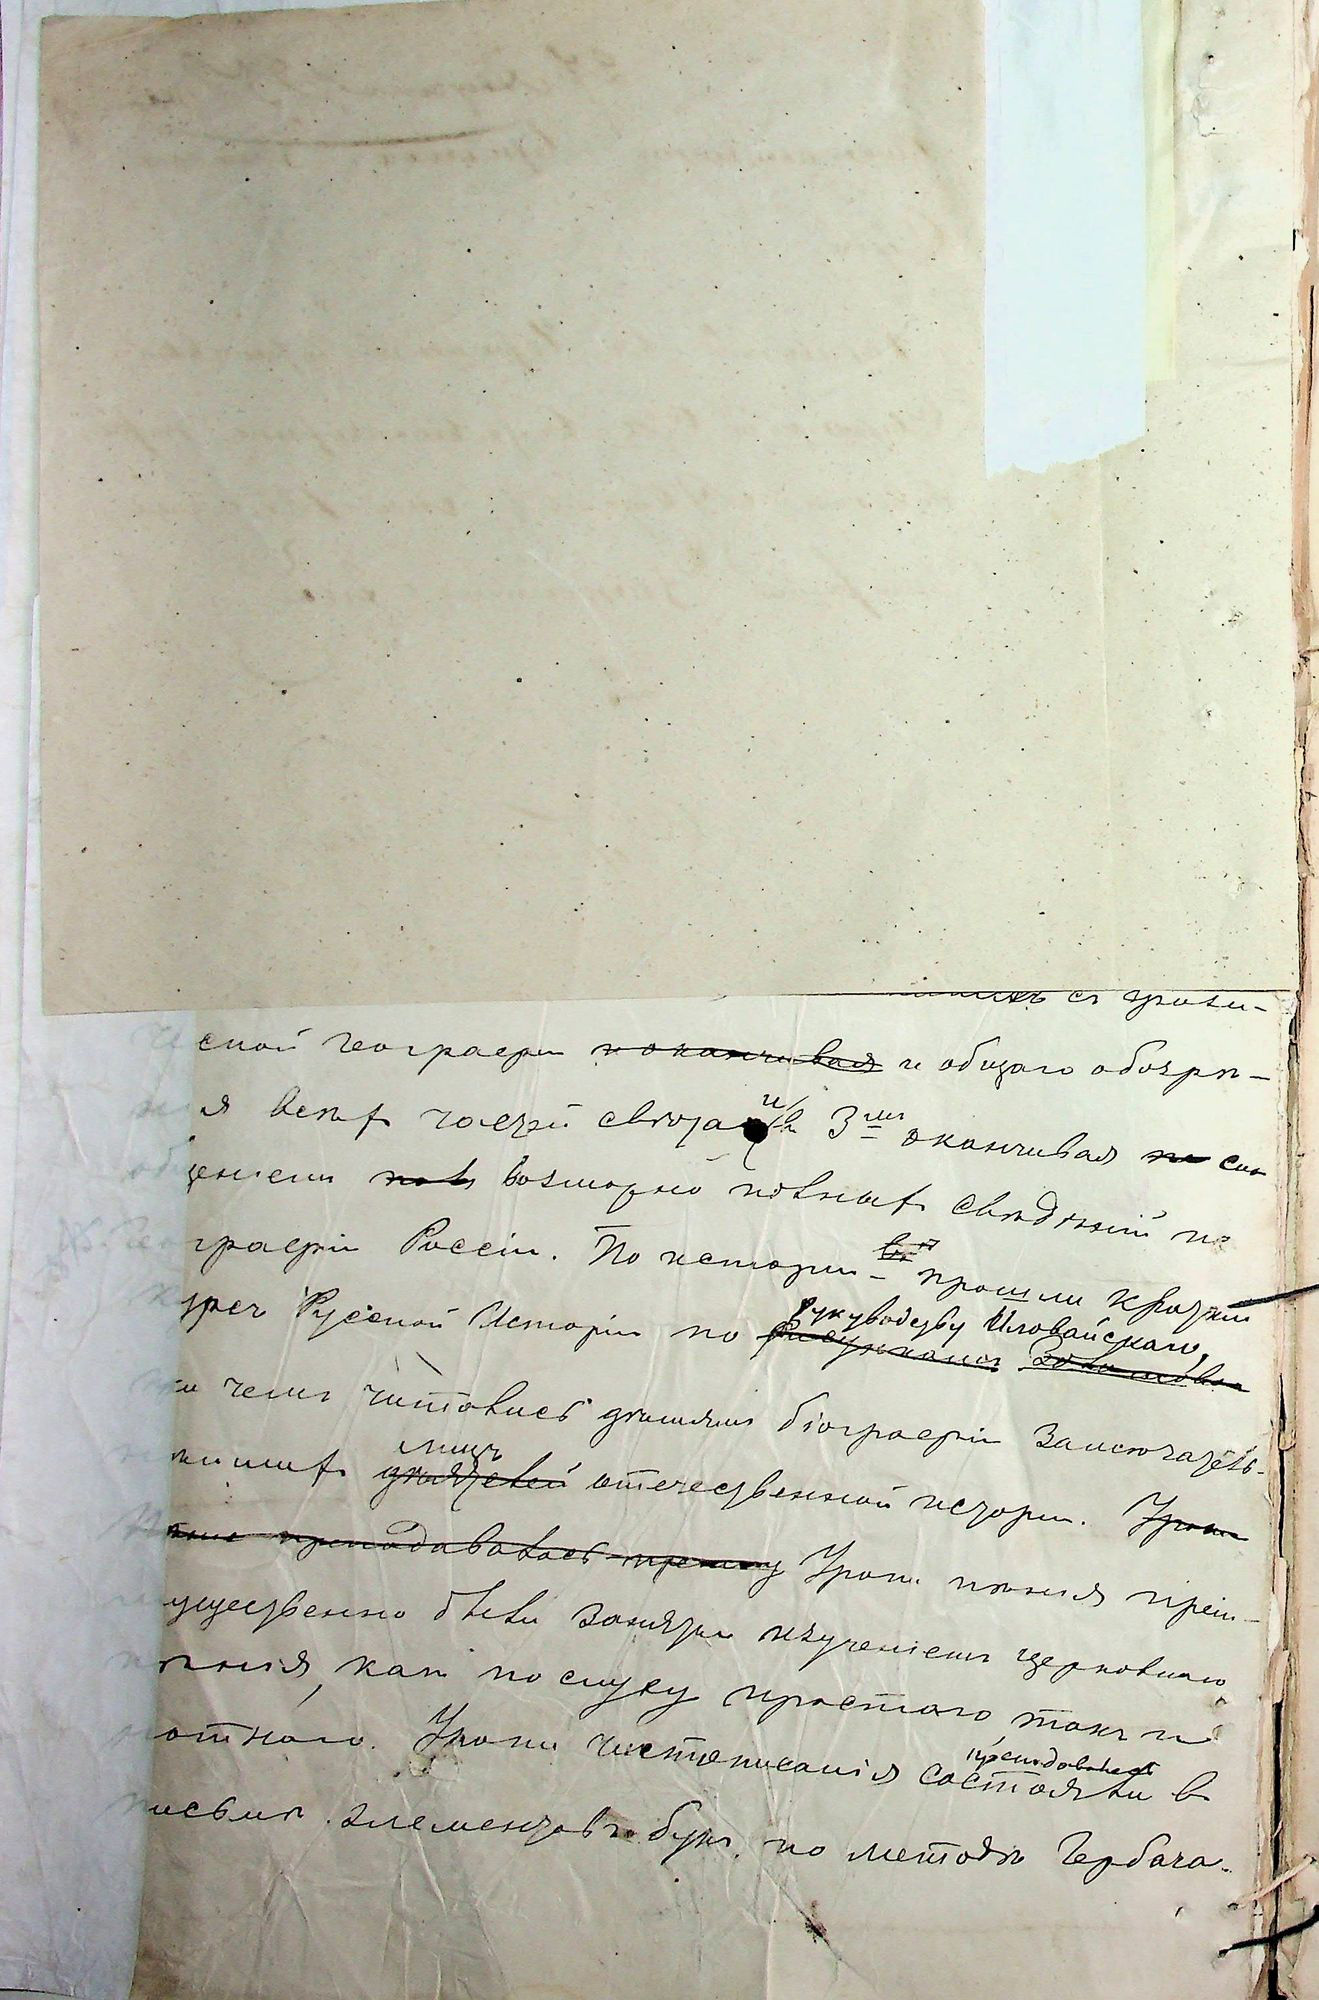 съ физи-
ческой географіи и оканчивая и общаго обозрѣ-
нія всѣхъ частей свѣта и въ 3мъ оканчивая
общеніемъ возможно полныхъ свѣдѣній по
географіи Россіи. По исторіи прошли краткій
курсъ Русской Исторіи по руководству Иловайскаго,
при чемъ читались дѣтьми біографіи замѣчатель-
нѣйшихъ лицъ дѣятелей отечественной исторіи. Уроки
пѣнія преподавались Уроки пѣнія преи-
мущественно были заняты изученіемъ церковнаго
пѣнія, какъ по слуху простаго такъ и
нотнаго. Уроки чистописанія состояли въ
преподавались
письмѣ элементовъ буквъ по методѣ Гербача.